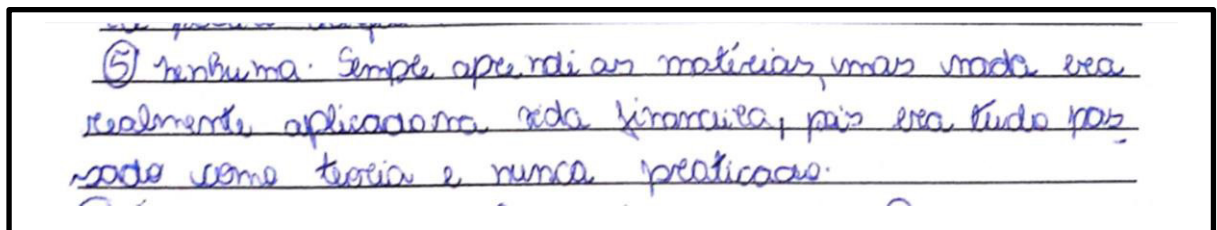 ⑤ nenhuma. Sempre aprendi as matérias, mas nada era
realmente aplicado na vida financeira, pois era tudo pas
sado como teoria e nunca praticado.